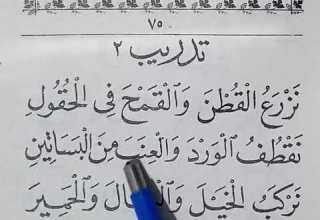 ٧٥
تدريب ٢
نَزْرَعُ الْقُطْنَ وَالْقَمْحَ فِى الْحُقُولِ
نَقْطُفُ الْوَرْدَ وَالْعِنَبَ مِنَ الْبَسَاتِينِ
نَرْكَبُ الْخَيْلَ وَالْحَمِيرَ